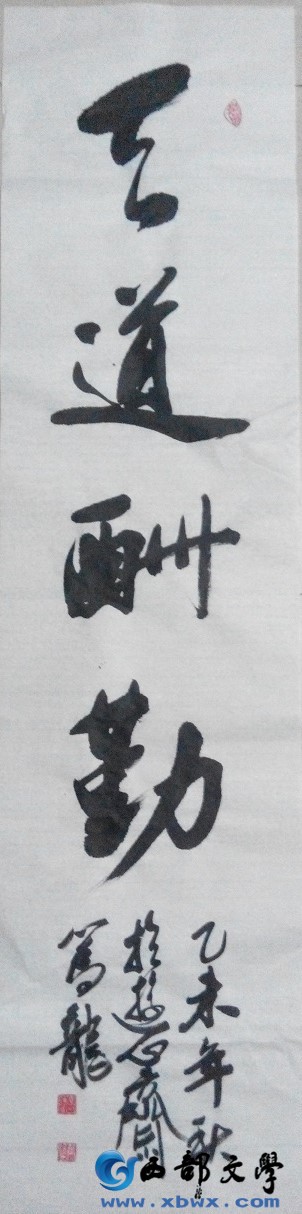 天道酬勤
乙未年秋
於遊心齋
篤龍
西部文學
www.xbwx.com